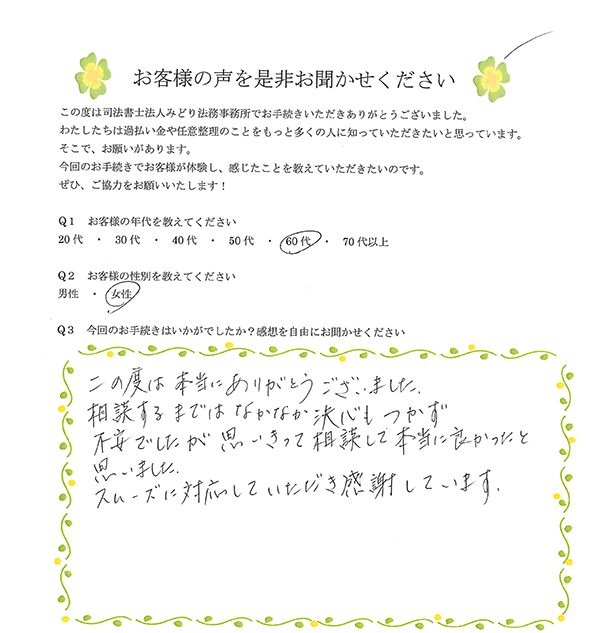 お客様の声を是非お聞かせください
この度は司法書士法人みどり法務事務所でお手続きいただきありがとうございました。
わたしたちは過払い金や任意整理のことをもっと多くの人に知っていただきたいと思っています。
そこで、お願いがあります。
今回のお手続きでお客様が体験し、感じたことを教えていただきたいのです。
ぜひ、ご協力をお願いいたします！
Q１ お客様の年代を教えてください
20代 ・ 30代 ・ 40代 ・ 50代 ・ 60代 ・ 70代以上
Q２ お客様の性別を教えてください
男性 ・ 女性
Q３ 今回のお手続きはいかがでしたか？感想を自由にお聞かせください
この度は本当にありがとうございました.
相談するまではなかなか決心もつかず
不安でしたが思いきって相談して本当に良かったと
思いました.
スムーズに対応していただき感謝しています.